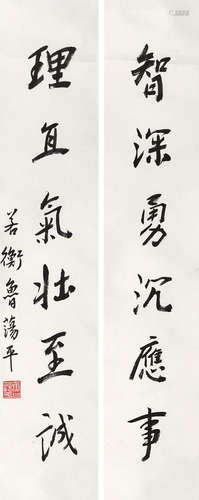 智深勇沉應事
理直氣壯至誠
若衡魯蕩平